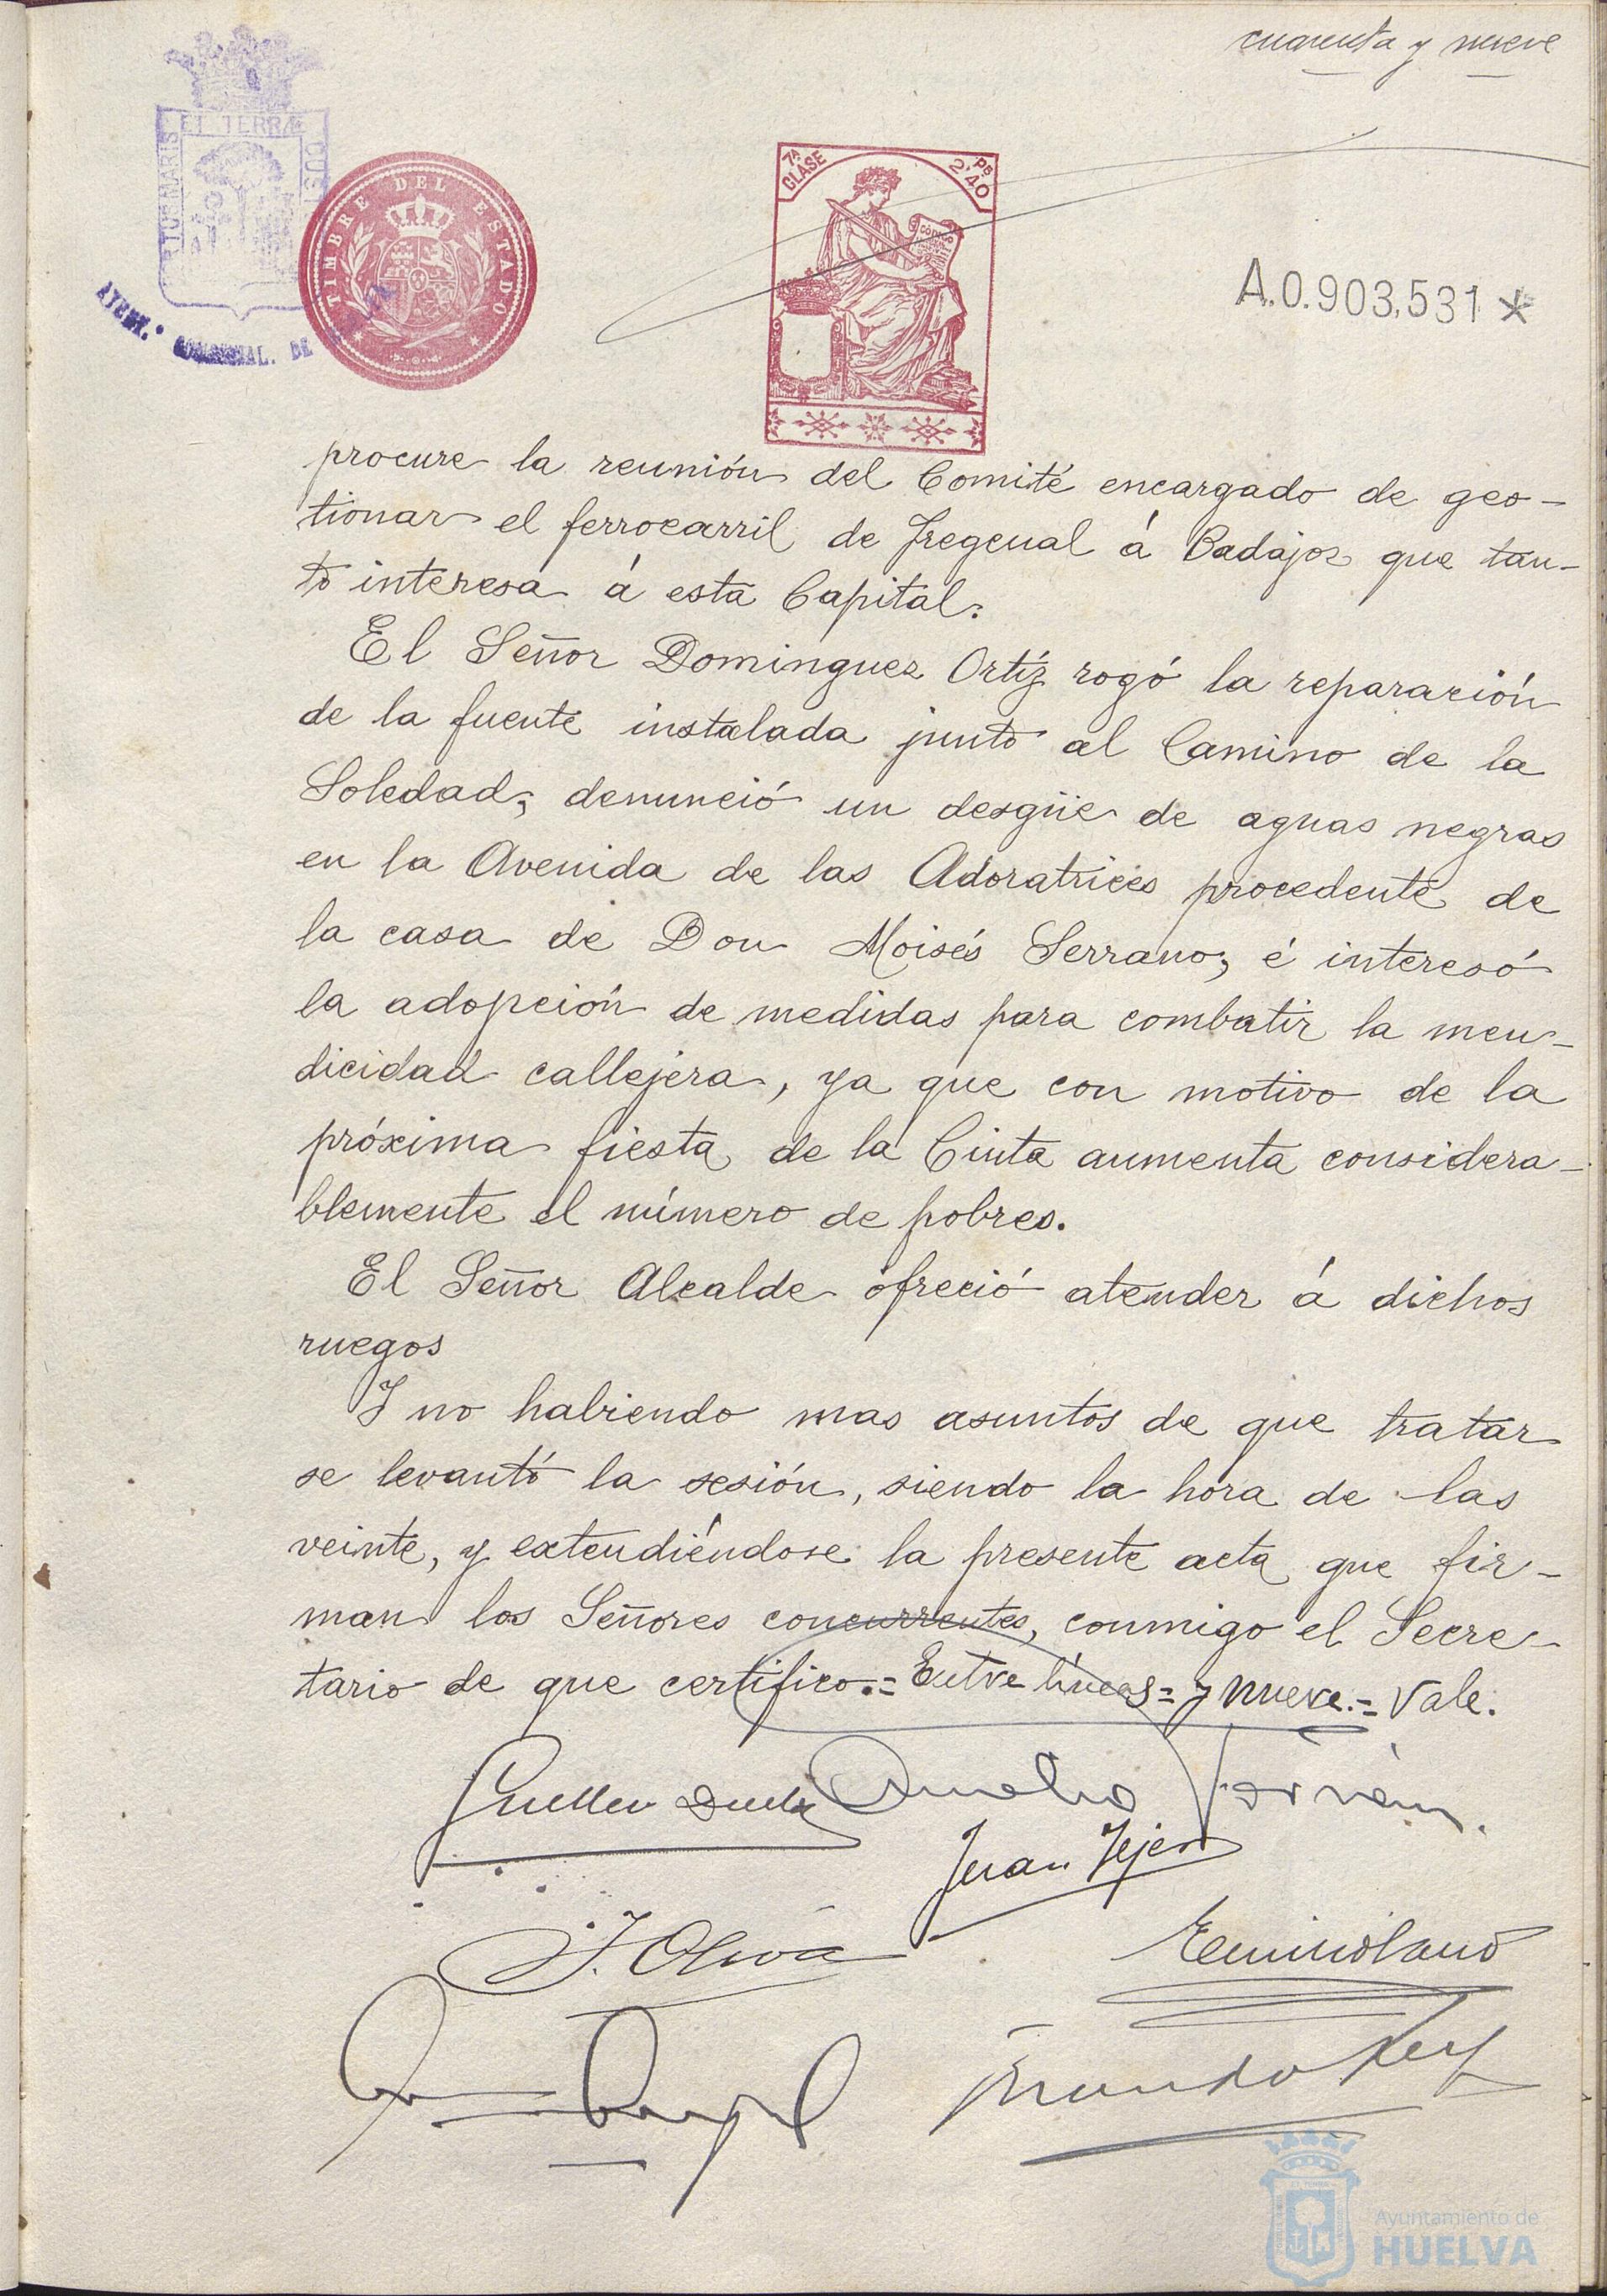 cuarenta y nueve
ET TERRÆ
PORTUS MARIS
CUS
AYUNT.º
DE
TIMBRE DEL ESTADO
7ª CLASE
Ps 2'40
CODIGO
A.0.903,531 *
procure la reunión del Comité encargado de ges-
tionar el ferrocarril de Fregenal á Badajoz que tan-
to interesa á esta Capital.
El Señor Dominguez Ortíz rogó la reparación
de la fuente instalada junto al Camino de la
Soledad; denunció un desgüe de aguas negras
en la Avenida de las Adoratrices procedente de
la casa de Don Moisés Serrano; é interesó
la adopción de medidas para combatir la men-
dicidad callejera, ya que con motivo de la
próxima fiesta de la Cinta aumenta considera-
blemente el número de pobres.
El Señor Alcalde ofreció atender á dichos
ruegos
Y no habiendo mas asuntos de que tratar
se levantó la sesión, siendo la hora de las
veinte, y extendiéndose la presente acta que fir-
man los Señores concurrentes, conmigo el Secre-
tario de que certifico.= Entre líneas= y nueve.= Vale.
Juan
J. Oliva
Ayuntamiento de
HUELVA